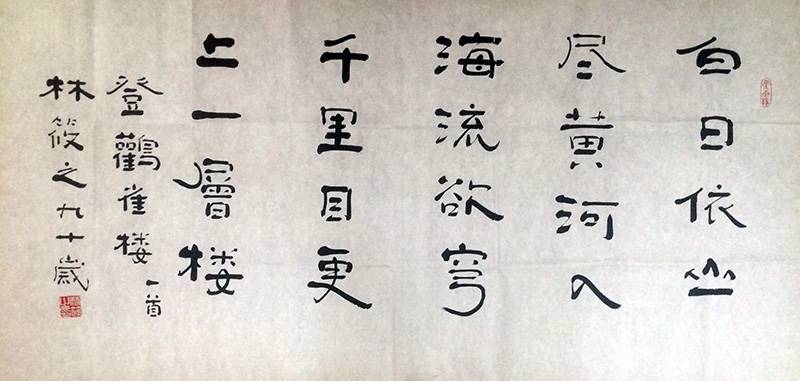 白日依山
尽黄河入
海流欲穹
千里目更
上一層楼
登鸛雀楼 一首
林筱之九十歲